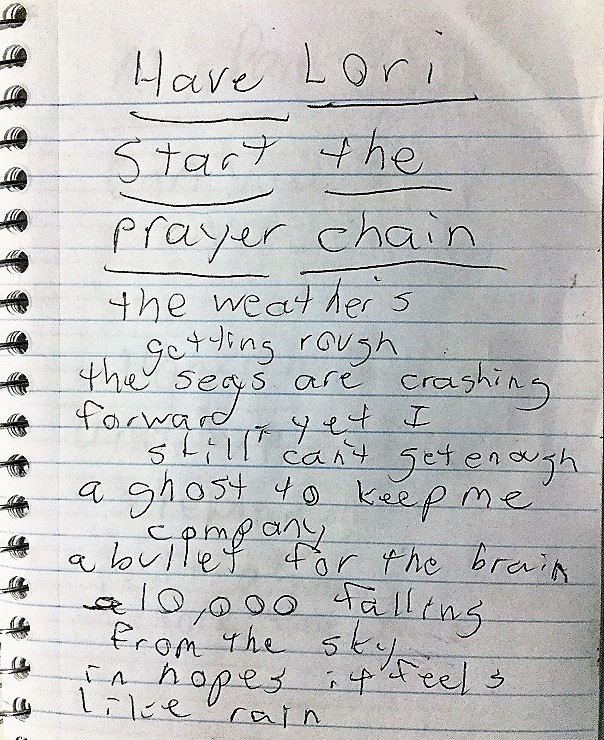 Have Lori
Start the
prayer chain
the weather's
getting rough
the seas are crashing
forward, yet I
still can't get enough
a ghost to keep me
company
a bullet for the brain
10,000 falling
from the sky
in hopes it feels
like rain